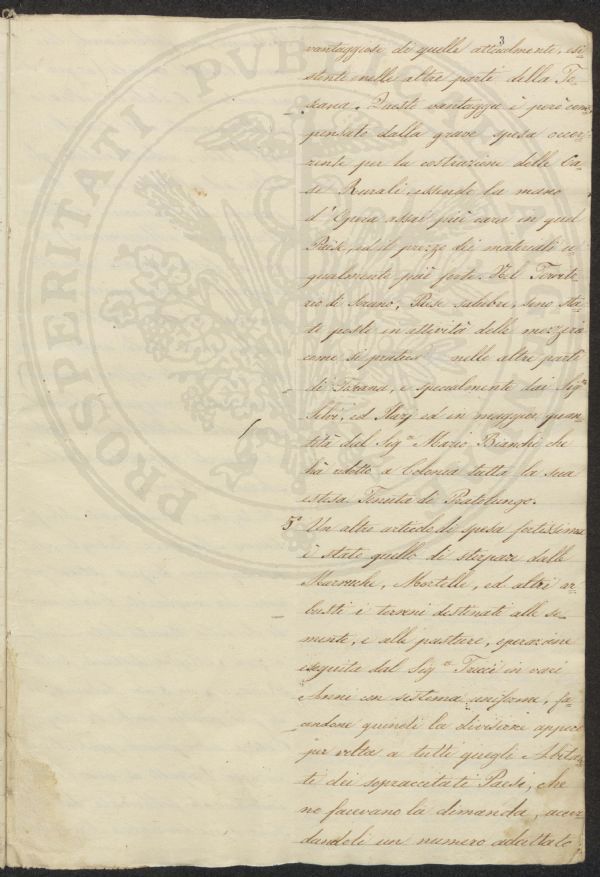 3
vantaggiose di quelle attualmente, esi=
stenti nelle altre parti della To=
scana. Questo vantaggio è però com=
pensato dalla grave spesa occor=
rente per la costruzione delle Ca=
se Rurali, essendo la mano
d'Opera assai più cara in quel
Paese, ed il prezzo dei materiali e=
gualmente più forte. Nel Territo=
rio di Sorano, Paese salubre, sono sta=
te poste in attività delle mezzerie
come si pratica nelle altre parti
di Toscana, e specialmente dai Sigri
Selvi, ed Ilarj ed in maggior quan=
tità dal Sigre Mario Bianchi che
hà ridotto a Colonia tutta la sua
estesa Tenuta di Pratolungo.
5° Un altro articolo di spesa fortissima
è stato quello di sterpare dalle
Marruche, Mortelle, ed altri ar=
busti i terreni destinati alle se=
mente, e alle pasture, operazione
eseguita dal Sigre Tricci in varj
Anni con sistema uniforme, fa=
cendone quindi la divisione appoco
per volta a tutti quegli Abitan=
ti dei sopraccitati Paesi, che
ne facevano la dimanda, accor=
dandoli un numero adattato
PROSPERITATI PUBLICAE